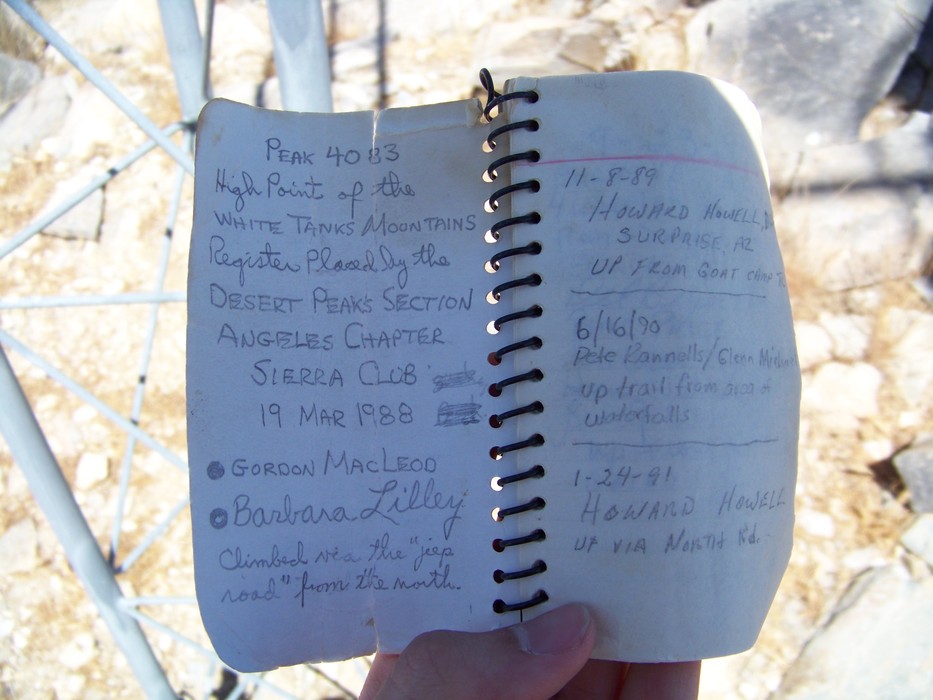 PEAK 4083
High Point of the
WHITE TANKS MOUNTAINS
Register Placed by the
DESERT PEAKS SECTION
ANGELES CHAPTER
SIERRA CLUB
19 MAR 1988
GORDON MACLEOD
Barbara Lilley
Climbed via the "jeep
road" from the north.
11-8-89
HOWARD HOWELL,
SURPRISE, AZ
UP FROM GOAT CAMP
6/16/90
Pete Rannalls/Glenn
up trail from area of
waterfalls
1-24-91
HOWARD HOWELL
UP VIA NORTH Rd.